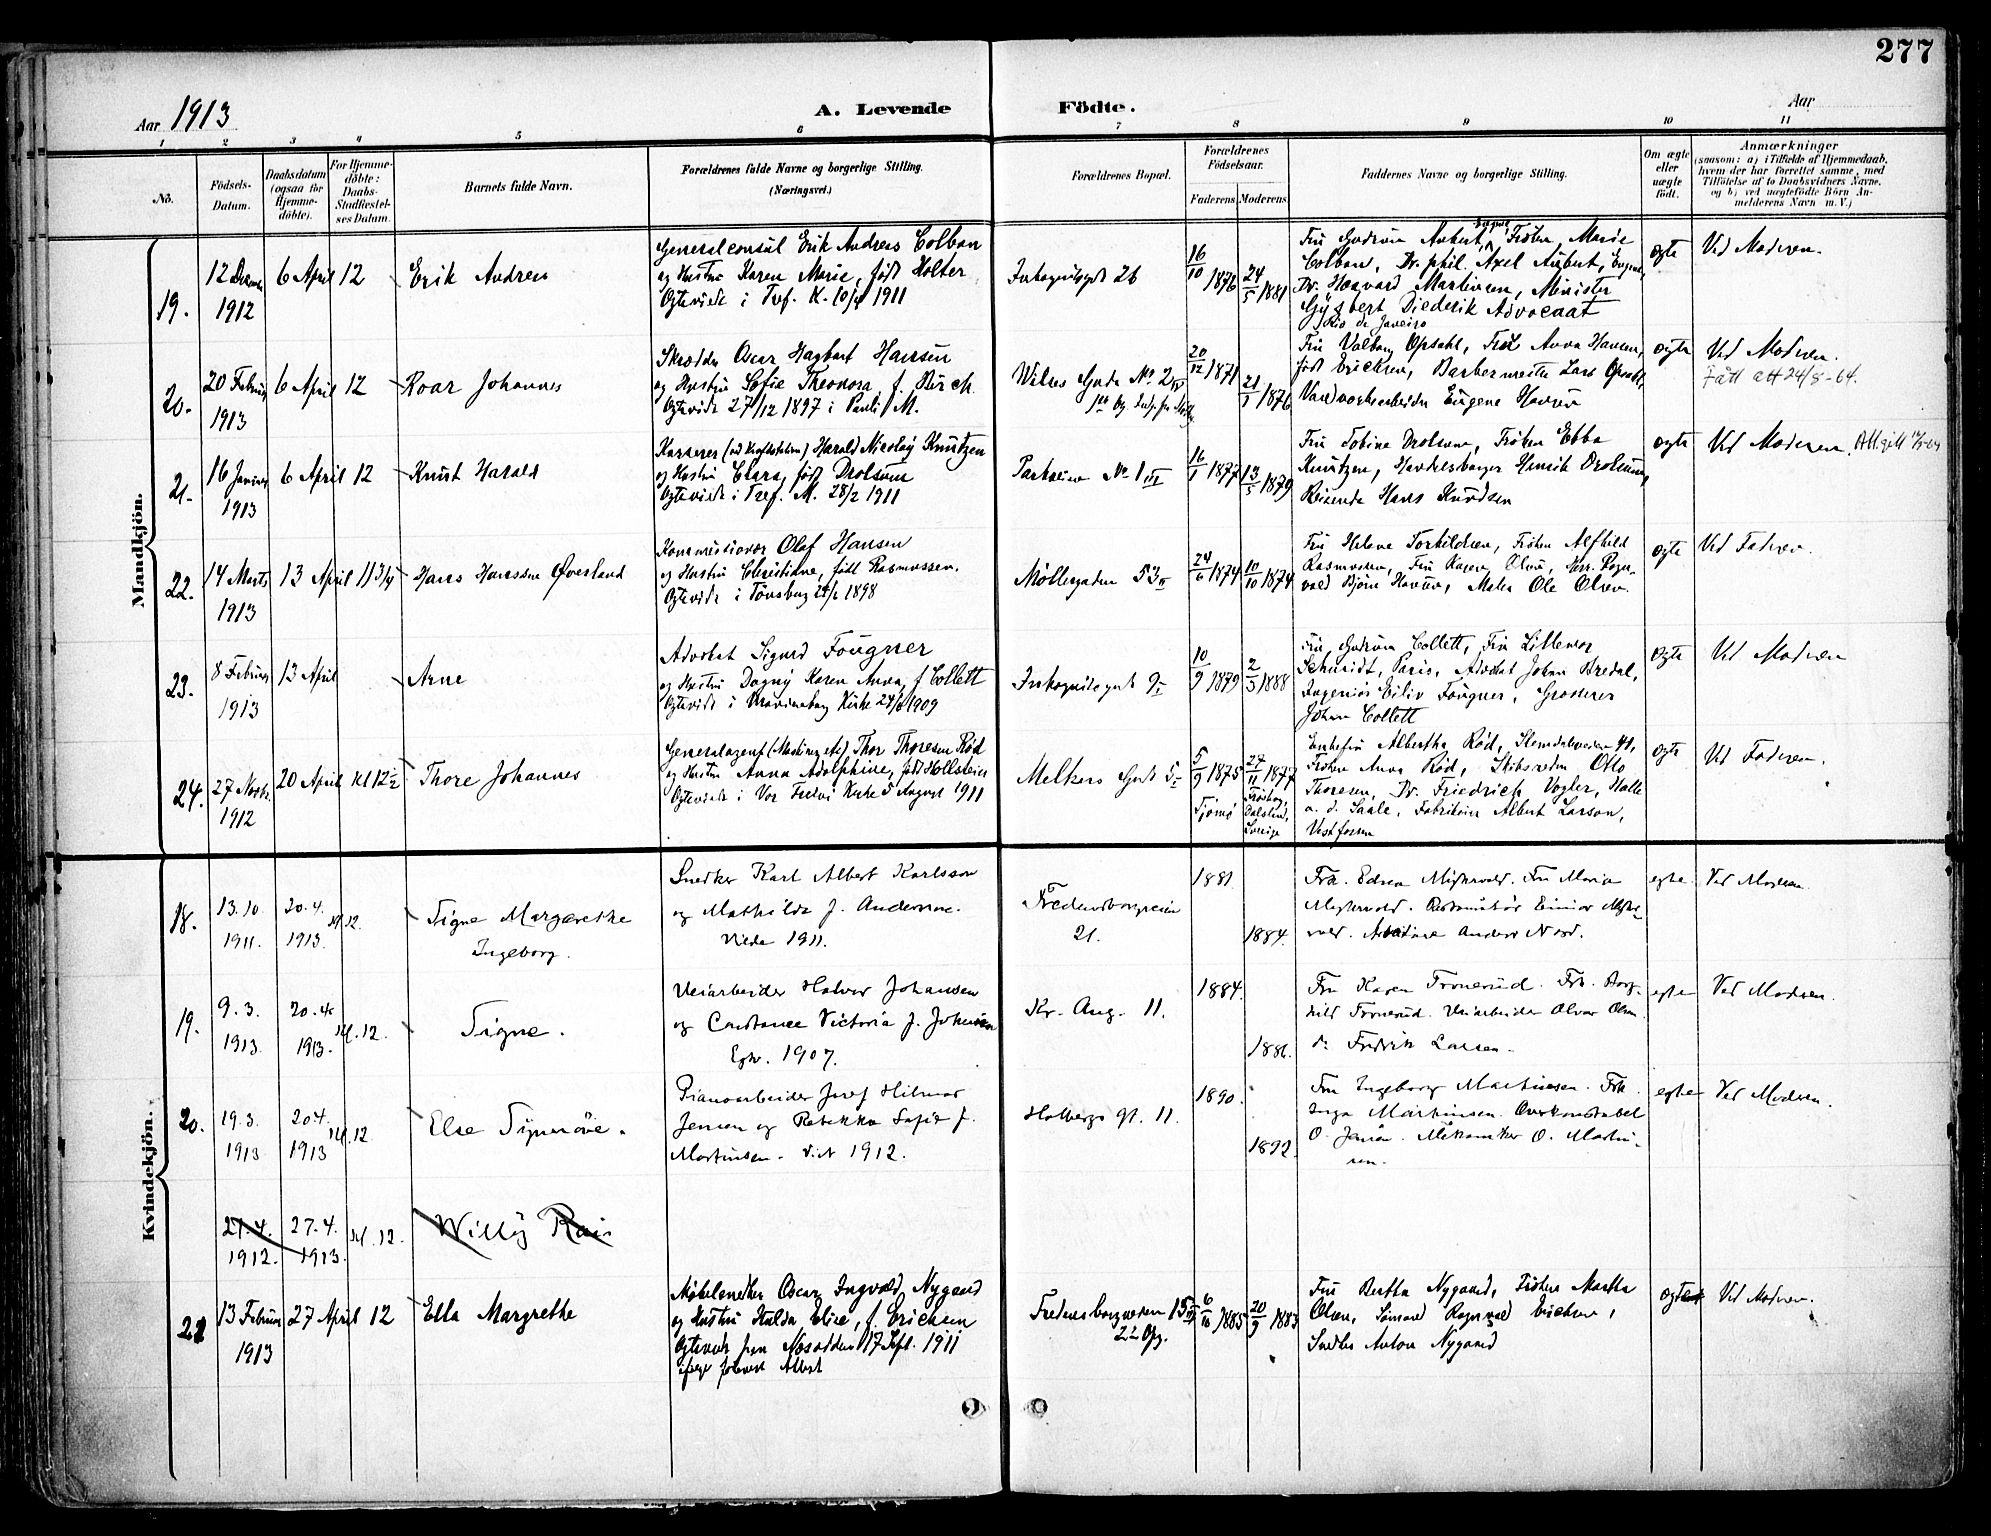 277
Aar 1913
A. Levende Födte.
Aar
1 2 3 4 5 6 7 8 9 10 11
No.
Födsels-Datum.
Daabsdatum (ogsaa for Hjemme-döbte).
For Hjemme-döbte: Daabs-Stadfæstel-ses Datum.
Barnets fulde Navn.
Forældrenes fulde Navne og borgerlige Stilling.
(Næringsvei.)
Forældrenes Bopæl.
Forældrenes Födselsaar.
Faderens Moderens
Faddernes Navne og borgerlige Stilling.
Om ægte eller uægte födt.
Anmærkninger
(saasom: a) i Tilfælde af Hjemmedaab,
hvem der har forrettet samme, med
Tilföielse af to Daabsvidners Navne,
og b) ved uægtefödte Börn An-
melderens Navn m. V.)
Mandkjön.
19.
1912
6 April 12
Erik Andreas
Generalconsul Erik Andreas Colban
og Hustru Karen Marie, født Holter
Ægteviet i Tref. K. 1911
26
16/10 1876
24/5 1881
Fru Gudrun Aubert, Frøken Marie
Colban, Dr. phil. Axel Aubert,
Dr. Haavard Martinsen, Minister
Gijsbert Diederik Advocaat
Rio de Janeiro
ægte
Ved Moderen.
20.
20 Februar
1913
6 April 12
Roar Johannes
Skrædder Oscar Hagbart Hansen
og Hustru Sofie Theonora, f. Birch
Ægteviet 27/12 1897 i Pauli M.
Wilses Gade No 2
20/12 1871
21/1 1876
Fru Valborg Opsahl, Frøk Anna Hansen,
født Erichsen, Barbermester Lars Opsahl,
Eugene Hansen
ægte
Ved Moderen.
Fått att 24/8-64.
21.
16 Januar
1913
6 April 12
Knut Harald
Kasserer Harald Nicolay Knutzen
og Hustru Clara, født Drolsum
Ægteviet i Tref. M. 28/2 1911
Parkveien No 1 III
16/1 1877
13/5 1879
Fru Tobine Drolsum, Frøken Ebba
Knutzen, Handelsborger Henrik Drolsum,
Reisende Hans Knudsen
ægte
Ved Moderen. Att.gitt
22.
14 Marts
1913
13 April
Hans Hansson Øverland
Kommissionær Olaf Hansen
og Hustru Christiane, født Rasmussen.
Ægteviet i Tønsberg 1898
Møllergaden 53 II
24/6 1874
10/10 1874
Fru Helene Torkildsen, Frøken Alfhild
Rasmussen, Fru Karen Olsen, Herr Ragn-
vald Bjørn Hansen, Maler Ole Olsen.
ægte
Ved Faderen.
23.
8 Februar
1913
13 April
Arne
Advokat Sigurd Fougner
og Hustru Dagny Karen Anna, f Collett
Ægteviet i Uranienborg Kirke 1909
Inkognitogat 9 I
10/9 1879
2/3 1888
Fru Gudrun Collett, Fru Lillemor
Schmidt, Paris, Advokat Johan Bredal,
Ingeniør Eiliv Fougner, Grosserer
Johan Collett
ægte
Ved Moderen
24.
27 Novbr.
1912
20 April Kl 12½
Thore Johannes
Generalagent Thor Thoresen Rød
og Hustru Anna Adolphine, født Hollsteier
Ægteviet i Vor Frelsers Kirke 5 August 1911
Meltzers Gade 5 II
5/9 1875
Tjømø
24/11 1877
Dalsland,
Sverige
Enkefru Albertha Rød, Slemdalsveien 41,
Frøken Anna Rød, Skibsreder Otto
Thoresen, Dr. Friedrich Vogler, Halle
a. d. Saale, Fabrikeier Albert Larson,
Vestfossen
ægte
Ved Faderen.
Kvindekjön.
18.
13.10.
1911.
20.4.
1913.
kl. 12.
Signe Margarethe
Ingeborg.
Snedker Karl Albert Karlsson
og Mathilde f. Andersson.
Viede 1911.
Fredensborgveien
21.
1881.
1884.
Frk. Edna Mighsvold. Fru Maria
Mighsvold.
Anders Nord.
egte
Ved Moderen.
19.
9.3.
1913.
20.4.
1913.
kl. 12.
Signe.
Veiarbeider Halvor Johansen
og Constance Victoria f. Johansen
Egtev. 1907.
Kr. Aug. 11.
1884.
1881.
Fru Karen Tronerud. Frk. Borg-
hild Tronerud. Veiarbeider Olvar Olsen
do Fredrik Larsen.
egte
Ved Moderen.
20.
19.3.
1913.
20.4.
1913
kl. 12
Else Synnøve.
Pianoarbeider Josef Hilmar
Jensen og Rebekka Sofie f.
Martinsen. viet 1912.
Holbergs gt. 11.
1890.
1892.
Fru Ingeborg Martinsen. Frk
Inga Martinsen. Overkonstabel
O. Jensen. Mekaniker O. Martin-
sen.
egte
Ved Moderen.
27.4.
1912.
27.4.
1913.
kl. 12.
Willy Rais
21
13 Februar
1913
27 April 12
Ella Margrethe
Møbelsnedker Oscar Ingvald Nygaard
og Hustru Hulda Elise, f. Erichsen
Ægteviet paa Næsodden 17 Sept. 1911
Fredensborgveien 15
22 Opg.
6/10 1885
20/9 1883
Fru Bertha Nygaard, Frøken Martha
Olsen, Sømand Ragnvald Erichsen,
Snedker Anton Nygaard
ægte
Ved Moderen.